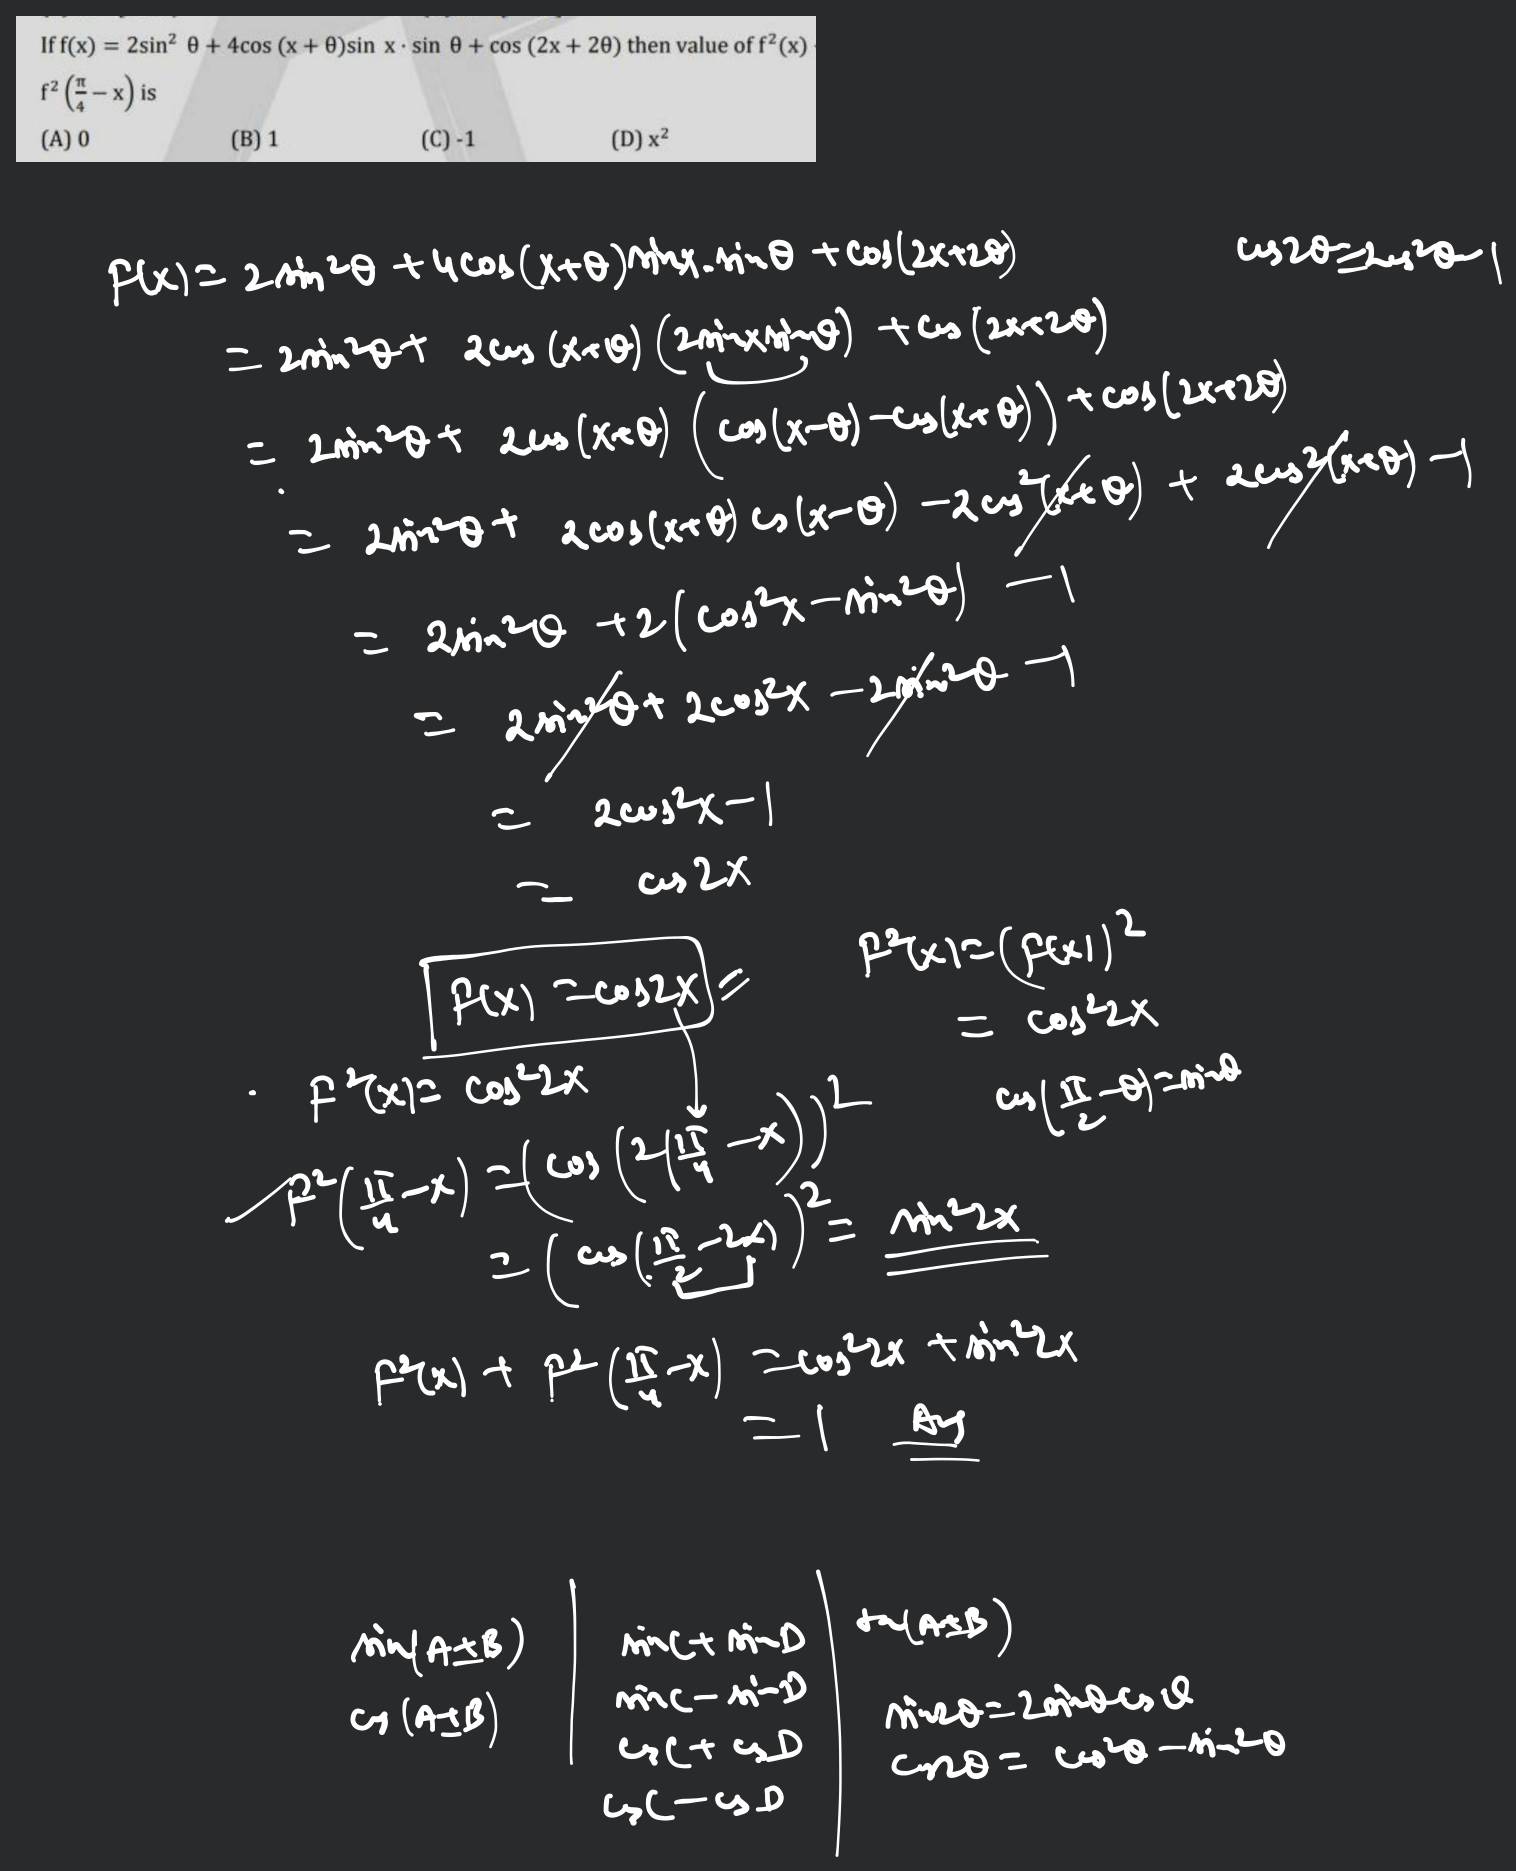 If f(x) = 2sin² θ + 4cos (x + θ)sin x · sin θ + cos (2x + 2θ) then value of f²(x)
f² (π/4 − x) is
(A) 0 (B) 1 (C) -1 (D) x²
f(x) = 2sin²θ + 4cos(x+θ)sinx.sinθ + cos(2x+2θ) cos2θ=2cos²θ-1
= 2sin²θ + 2cos(x+θ) (2sinxsinθ) + cos(2x+2θ)
= 2sin²θ + 2cos(x+θ) (cos(x-θ) - cos(x+θ)) + cos(2x+2θ)
= 2sin²θ + 2cos(x+θ) cos(x-θ) - 2cos²(x+θ) + 2cos²(x+θ) - 1
= 2sin²θ + 2(cos²x - sin²θ) - 1
= 2sin²θ + 2cos²x - 2sin²θ - 1
= 2cos²x - 1
= cos2x
f(x) = cos2x f²(x) = (f(x))²
= cos²2x
f²(x) = cos²2x cos(π/2 - θ) = sinθ
f²(π/4 - x) = (cos(2(π/4 - x)))²
= (cos(π/2 - 2x))² = sin²2x
f²(x) + f²(π/4 - x) = cos²2x + sin²2x
= 1 Ans
sin(A±B) sinC + sinD tan(A±B)
cos(A±B) sinC - sinD sin2θ = 2sinθcosθ
cosC + cosD cos2θ = cos²θ - sin²θ
cosC - cosD